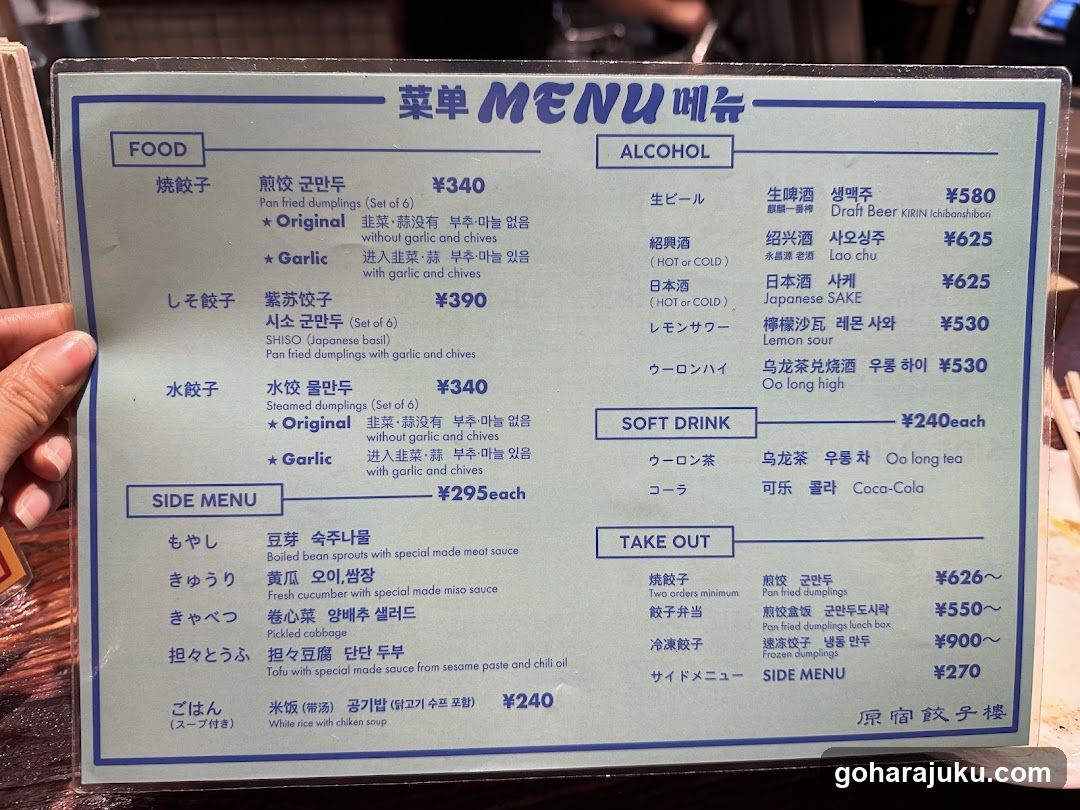 菜单 MENU 메뉴
FOOD
焼餃子 煎饺 군만두 ¥340
Pan fried dumplings (Set of 6)
★Original 韭菜·蒜没有 부추·마늘 없음
without garlic and chives
★Garlic 进入韭菜·蒜 부추·마늘 있음
with garlic and chives
しそ餃子 紫苏饺子 ¥390
시소 군만두 (Set of 6)
SHISO (Japanese basil)
Pan fried dumplings with garlic and chives
水餃子 水饺 물만두 ¥340
Steamed dumplings (Set of 6)
★Original 韭菜·蒜没有 부추·마늘 없음
without garlic and chives
★Garlic 进入韭菜·蒜 부추·마늘 있음
with garlic and chives
SIDE MENU ¥295each
もやし 豆芽 숙주나물
Boiled bean sprouts with special made meat sauce
きゅうり 黄瓜 오이,쌈장
Fresh cucumber with special made miso sauce
きゃべつ 卷心菜 양배추 샐러드
Pickled cabbage
担々とうふ 担々豆腐 단단 두부
Tofu with special made sauce from sesame paste and chili oil
ごはん 米饭 (带汤) 공기밥 (닭고기 수프 포함) ¥240
(スープ付き) White rice with chiken soup
ALCOHOL
生ビール 生啤酒 생맥주 ¥580
麒麟一番榨 Draft Beer KIRIN Ichibanshibori
紹興酒 绍兴酒 사오싱주 ¥625
(HOT or COLD) 永昌源 老酒 Lao chu
日本酒 日本酒 사케 ¥625
(HOT or COLD) Japanese SAKE
レモンサワー 檸檬沙瓦 레몬 사와 ¥530
Lemon sour
ウーロンハイ 乌龙茶兑烧酒 우롱 하이 ¥530
Oo long high
SOFT DRINK ¥240each
ウーロン茶 乌龙茶 우롱 차 Oo long tea
コーラ 可乐 콜라 Coca-Cola
TAKE OUT
焼餃子 煎饺 군만두 ¥626～
Two orders minimum Pan fried dumplings
餃子弁当 煎饺盒饭 군만두도시락 ¥550～
Pan fried dumplings lunch box
冷凍餃子 速冻饺子 냉동 만두 ¥900～
Frozen dumplings
サイドメニュー SIDE MENU ¥270
原宿餃子樓
goharajuku.com